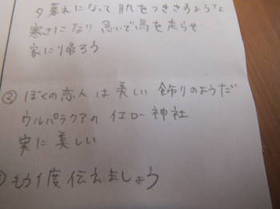 夕暮れになって肌をつきさすような
寒さになり 急いで馬を走らせ
家に帰ろう
② ぼくの恋人は美しい飾りのようだ
ウルパラクアの イエロー神社
実に美しい
もう1度伝えましょう